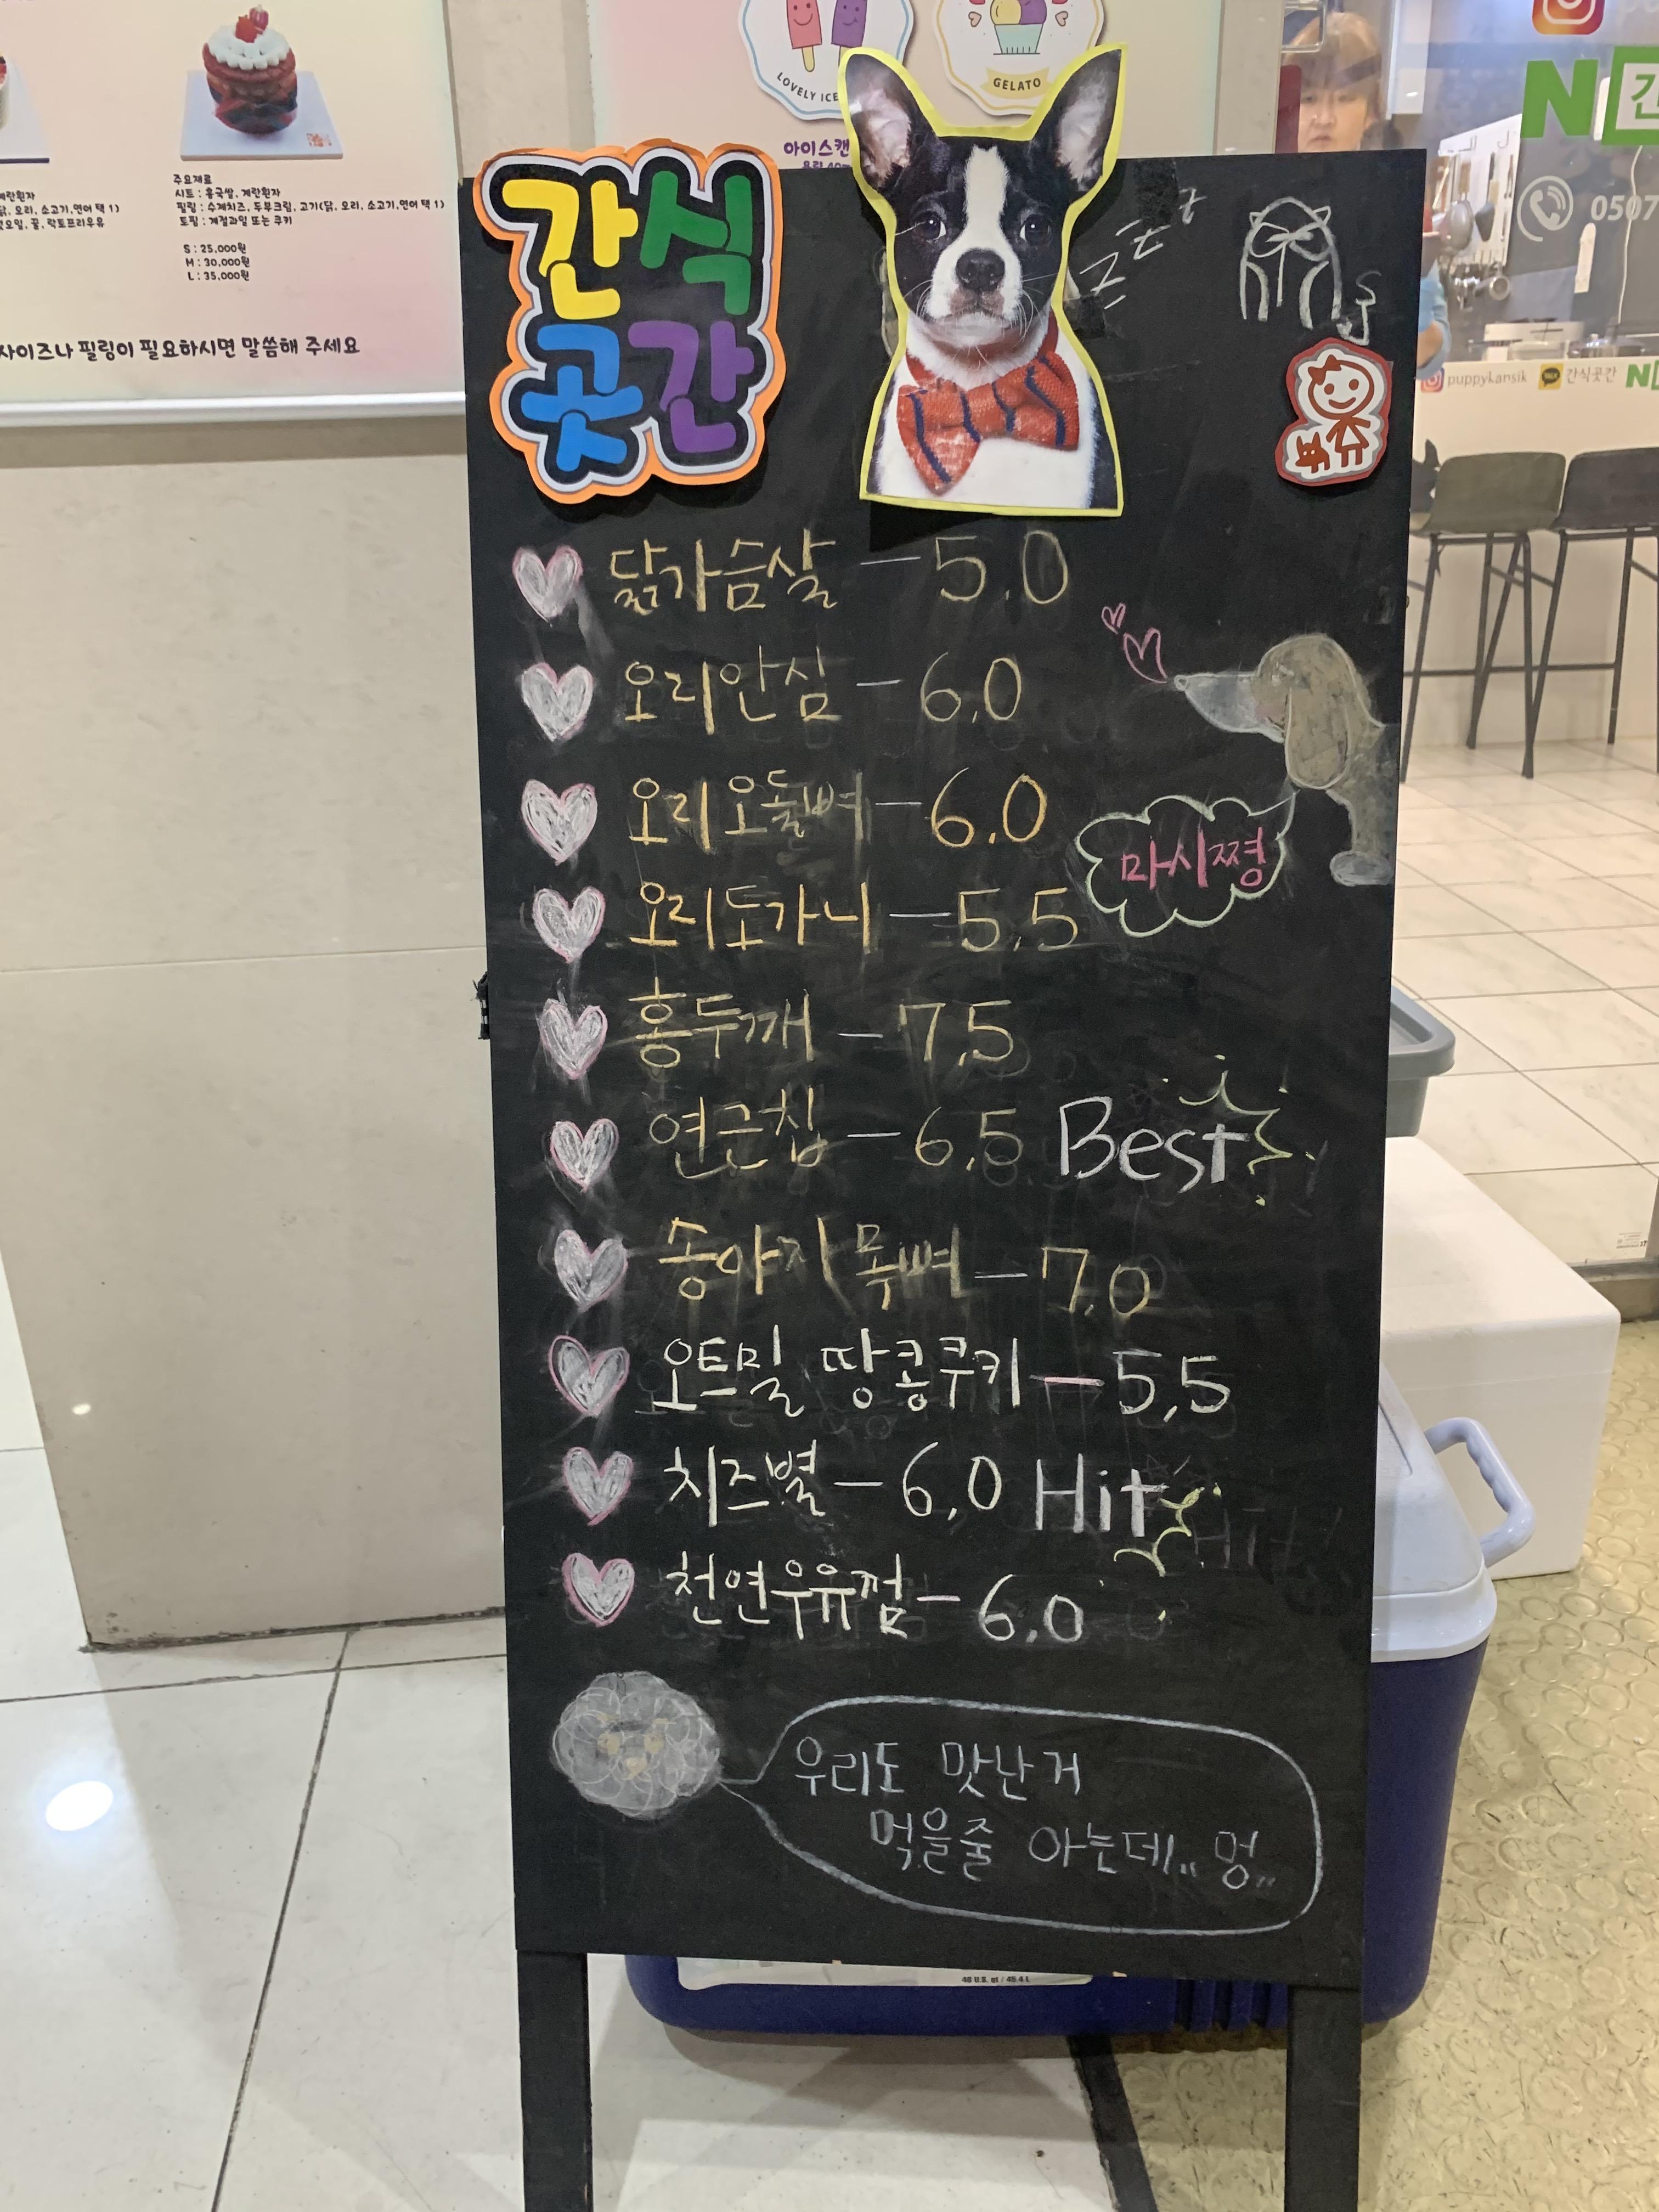 주요재료
시트 : 홍국쌀, 계란흰자
필링 : 수제치즈, 두부크림, 고기(닭, 오리, 소고기,연어 택 1)
토핑 : 계절과일 또는 쿠키
S : 25,000원
M : 30,000원
L : 35,000원
계란흰자
오리, 소고기,연어 택 1)
꿀, 락토프리우유
사이즈나 필링이 필요하시면 말씀해 주세요
LOVELY ICE
GELATO
아이스캔
N 간
0507
puppykansik 간식곳간 N
간식
곳간
닭가슴살 - 5.0
오리안심 - 6.0
오리오돌뼈 - 6.0
오리도가니 - 5.5
마시쪙
홍두깨 - 7.5
연근칩 - 6.5 Best
송아지목뼈 - 7.0
오트밀 땅콩쿠키 - 5,5
치즈볼 - 6,0 Hit
천연우유껌 - 6.0
우리도 맛난거
먹을줄 아는데.. 멍..
46 U.S. qt / 45.4 L